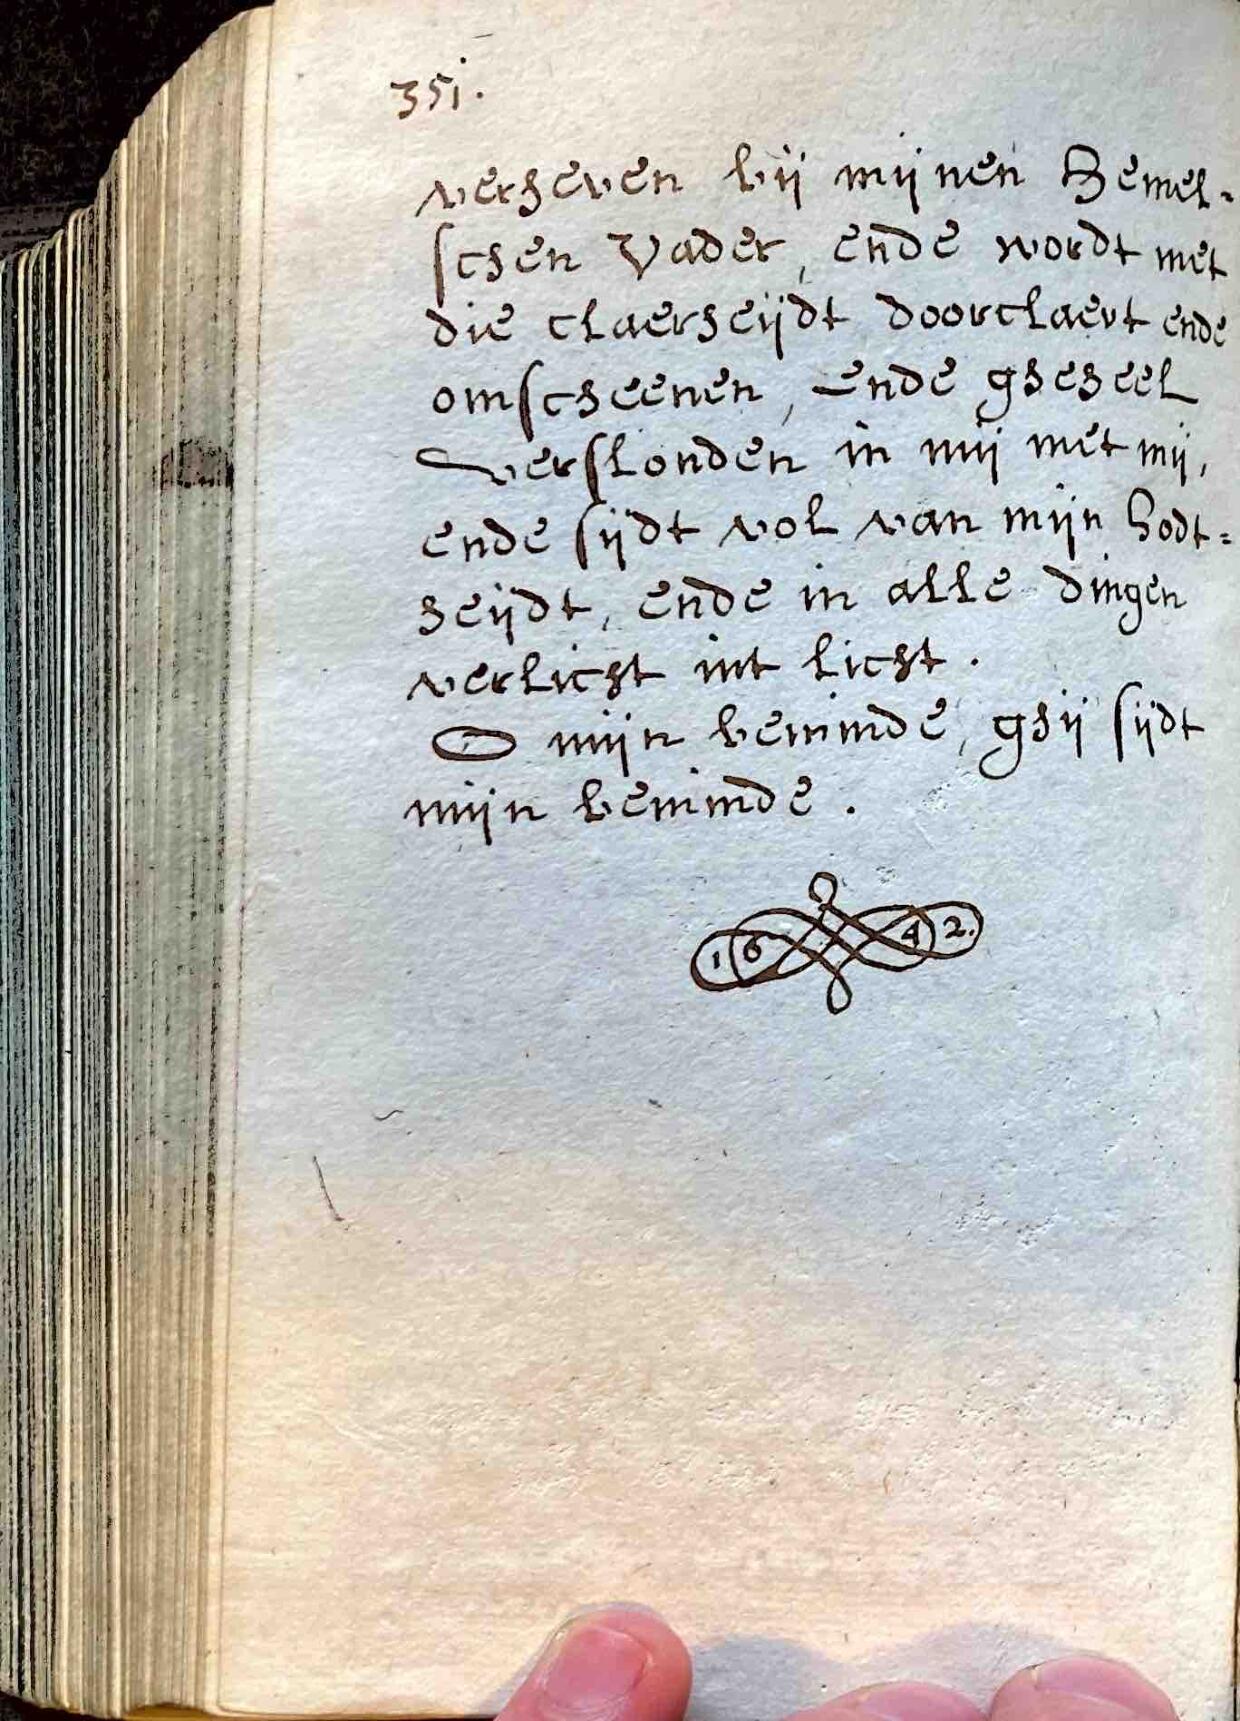 351.
verheven bij mijnen Hemel-
schen Vader, ende wordt met
die claerheijdt doorclaert ende
omscheenen, ende gheheel
verslonden in mij met mij,
ende sijdt vol van mijn Godt=
heijdt, ende in alle dingen
verlicht int licht.
O mijn beminde, ghij sijdt
mijn beminde.
1642.